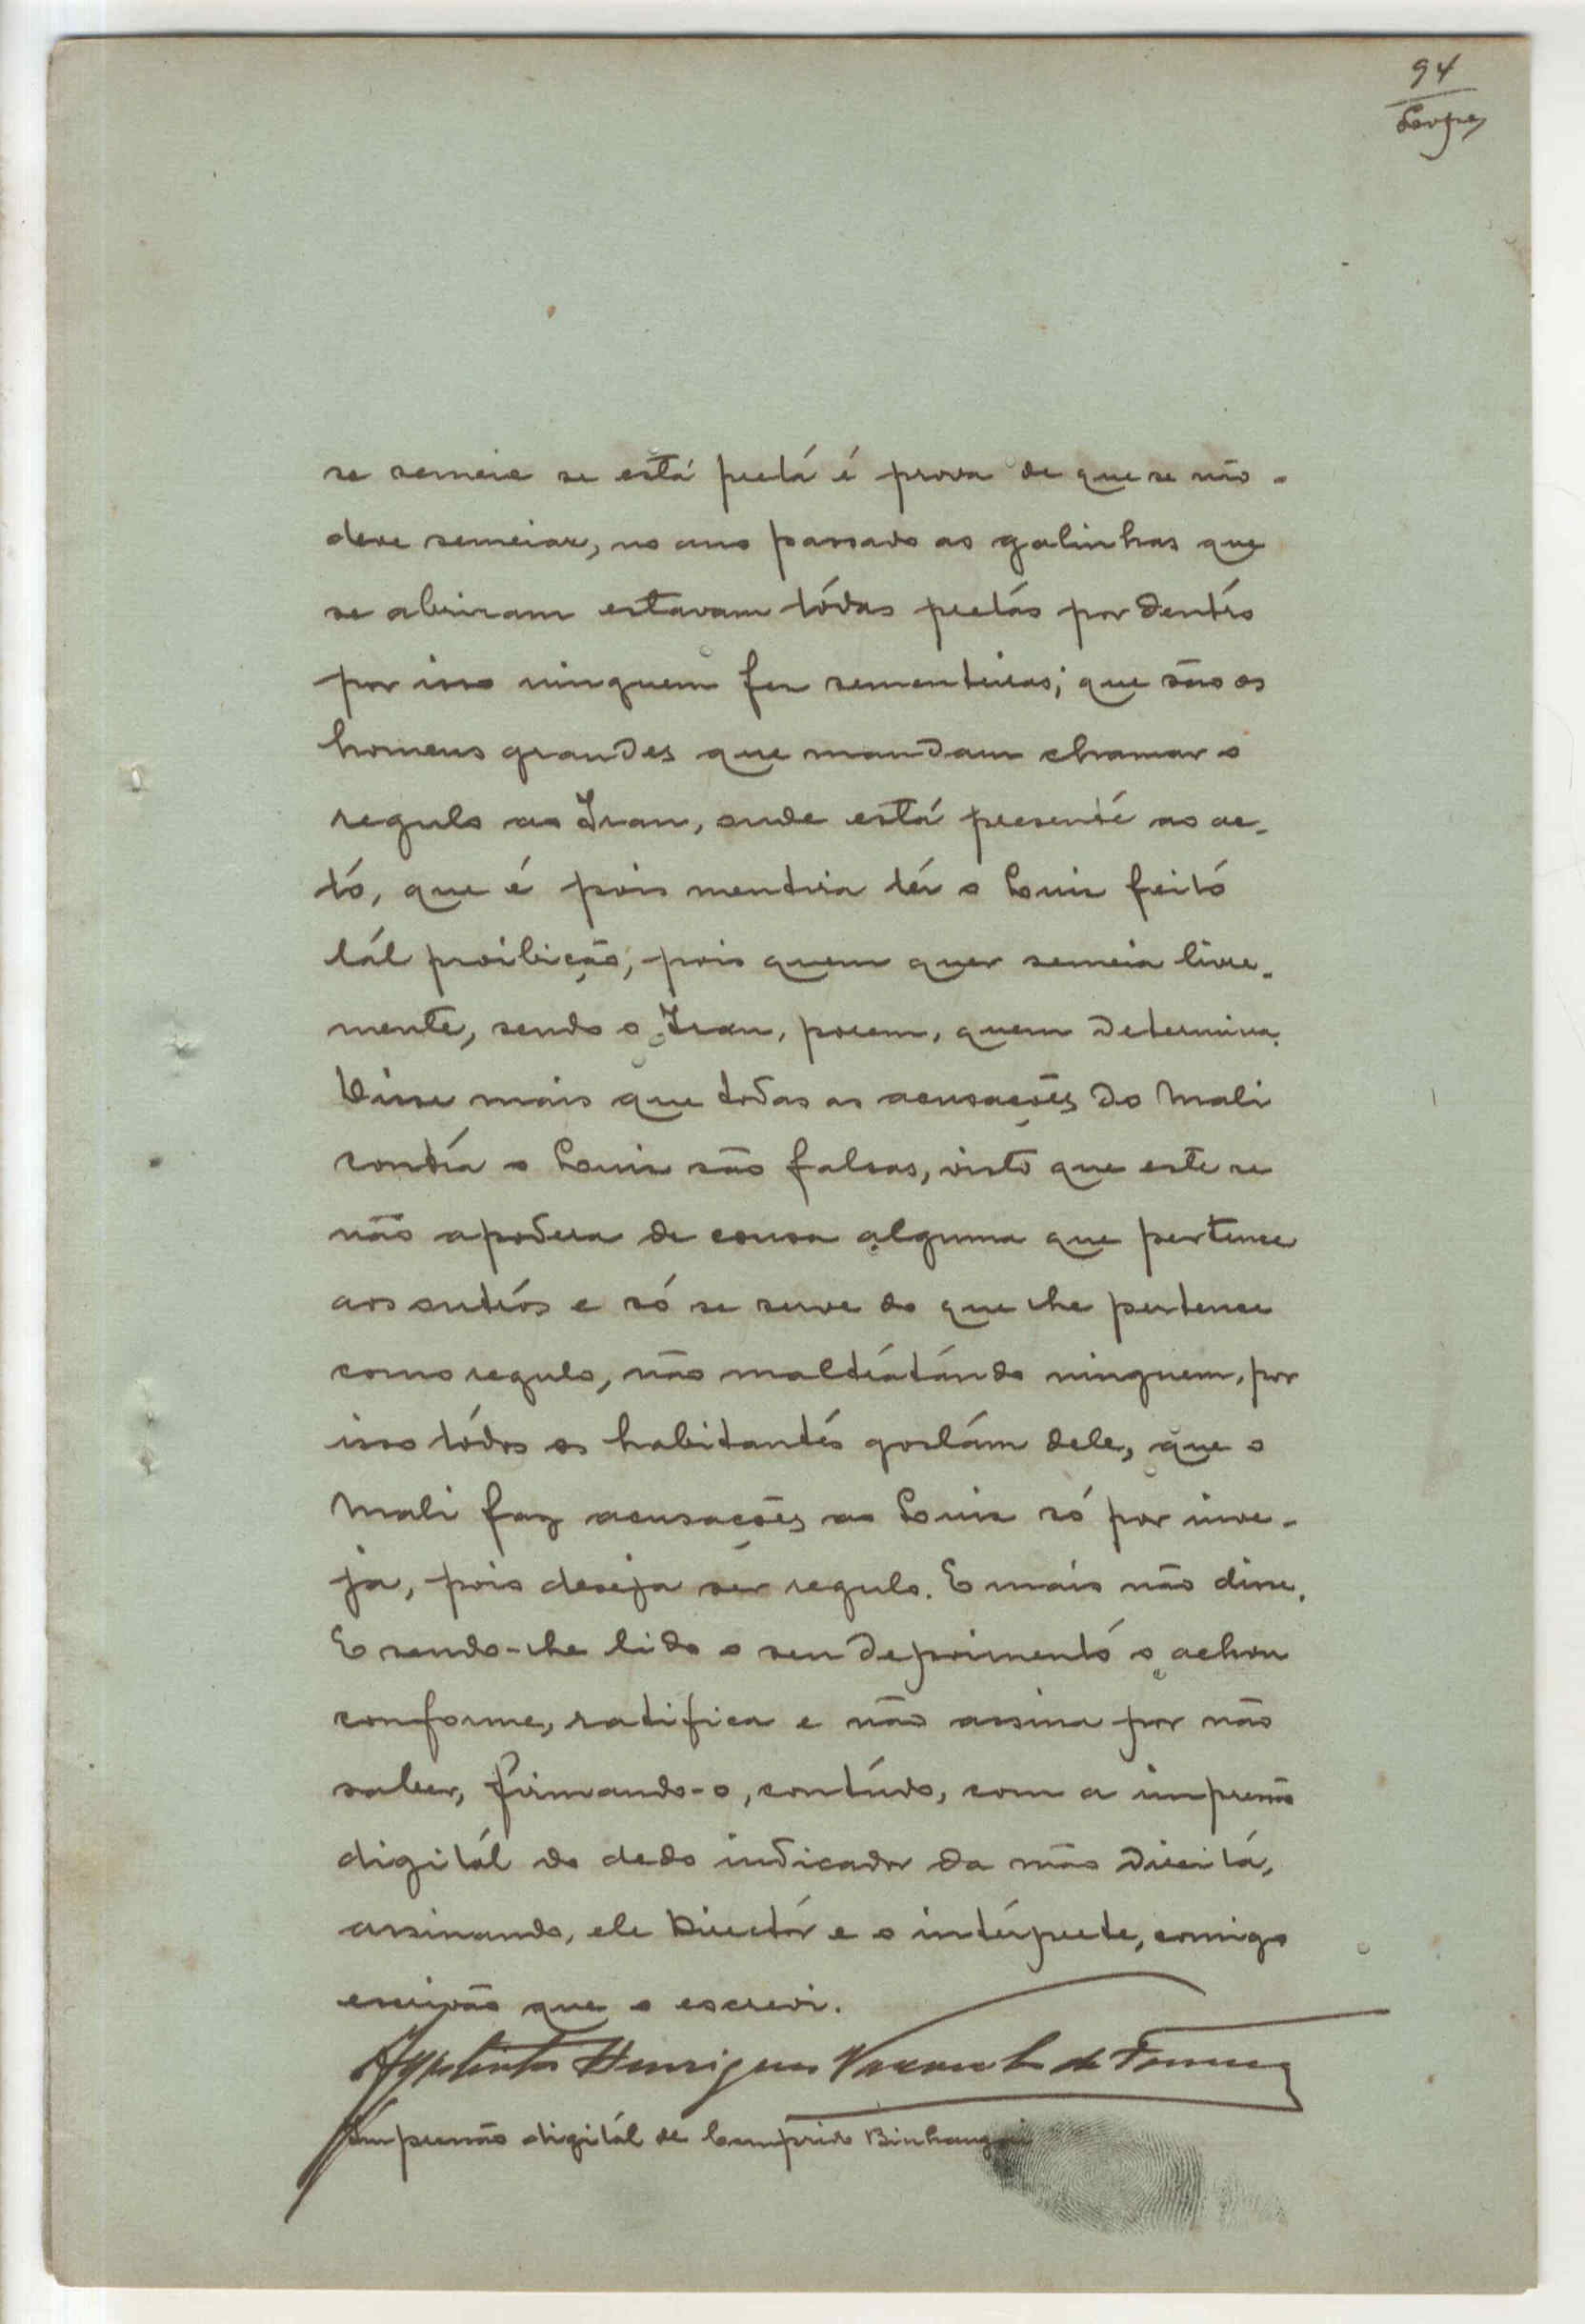 94
Lopes
se semeie se está pretá é prova de que se não
deve semeiar, no ano passado as galinhas que
se abriram estavam tódas pretás por dentró
por isso ninguem fez sementeiras; que são os
homens grandes que mandam chamar o
regulo ao Iran, onde está presenté ao ac-
tó, que é pois mentira tér o Luis feitó
tál proibição, pois quem quer semeia livre-
mente, sendo o Iran, porem, quem determina.
Disse mais que todas as acusações do Mali
contra o Luis são falsas, visto que este se
não apodera de cousa alguma que pertence
aos outrós e só se serve do que lhe pertence
como regulo, não maltratándo ninguem, por
isso tódos os habitantés gostám dele, que o
Mali faz acusações ao Luis só por inve-
ja, pois deseja sêr regulo. E mais não disse.
E sendo-lhe lido o seu depoimentó o achou
conforme, ratifica e não assina por não
saber, firmando-o, contúdo, com a impressão
digitál do dedo indicador da mão direitá,
assinando, ele Directór e o intérprete, comigo
escrivão que o escrevi.
Henriques de
Impressão digitál de Comprido